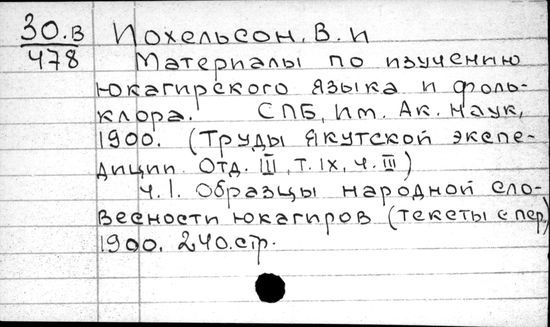 30.в Иохельсон. В. И
478 Материалы по изучению
юкагирского языка и фоль-
клора. СПБ, Им. Ак. Наук,
1900. (Труды якутской экспе-
диции. Отд. III, т. IX, ч. III)
ч. I. Образцы народной сло-
весности юкагиров (тексты с пер)
1900. 240.стр.